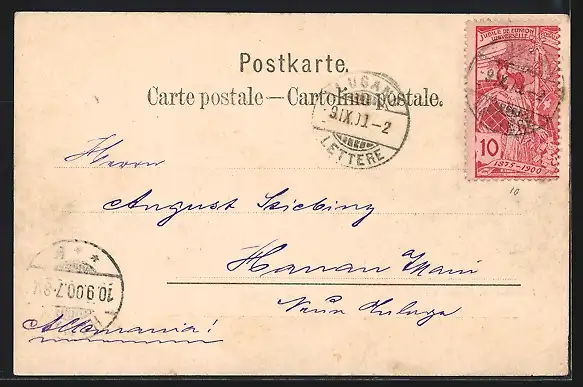 Postkarte.
Carte postale — Cartolina postale.
JUBILÉ DE L'UNION
UNIVERSELLE
10
1875-1900
LUGANO
9.IX.00.-2
LETTERE
10
Herrn
August
Hanau Main
10.9.00.7-8V.
Allemania!